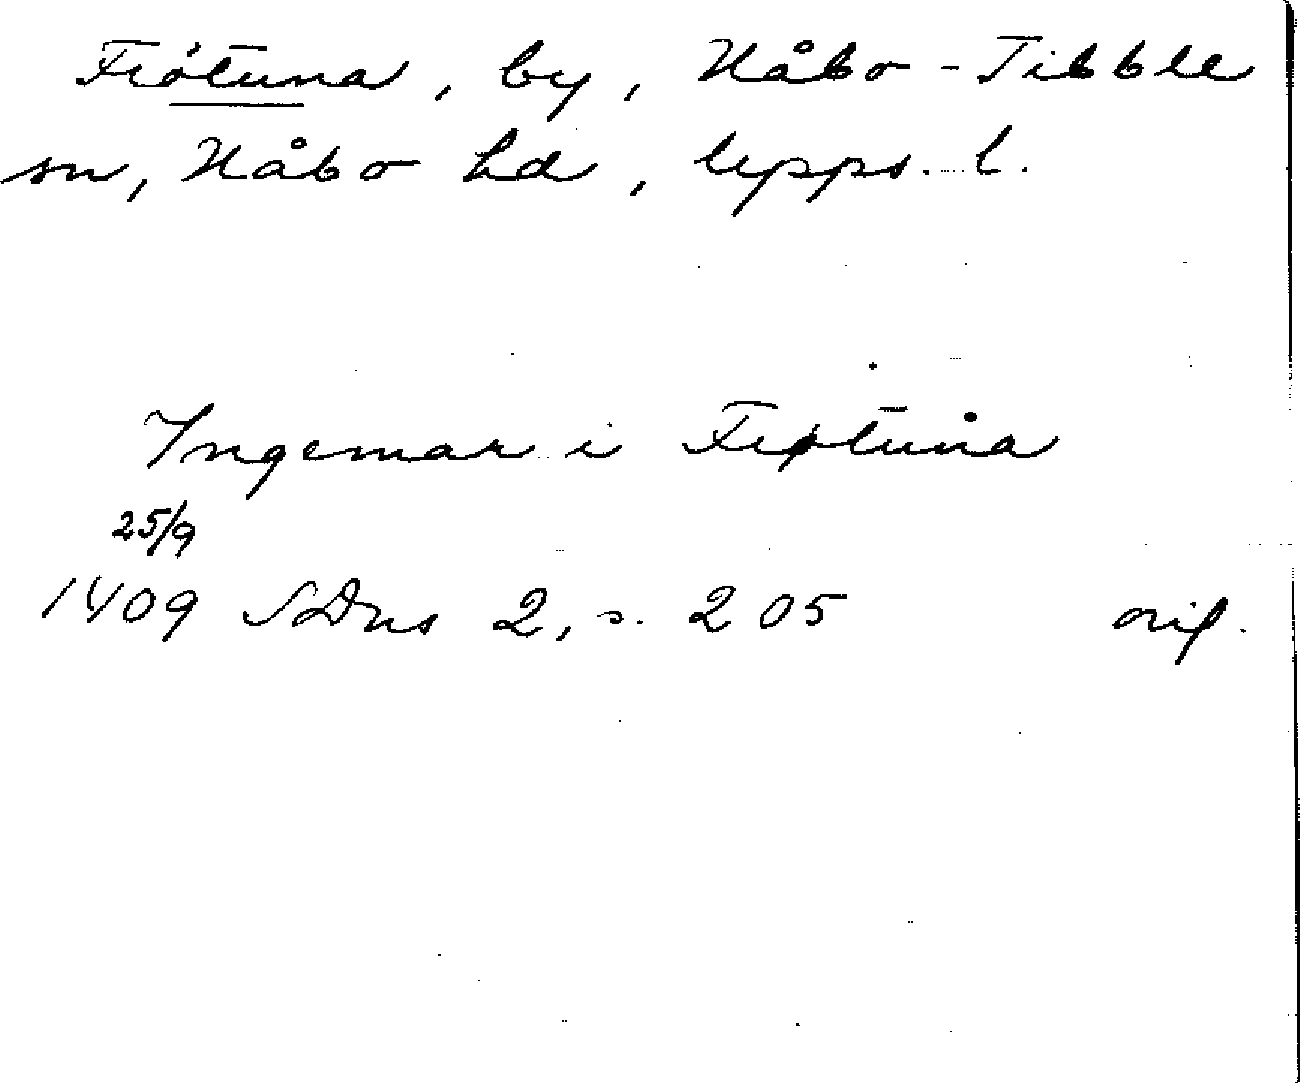 Frötuna, by, Håbo-Tibble
sn, Håbo hd, Upps. l.
Ingemar i Frøtuna
25/9
1409 SDns 2, s. 205 orig.